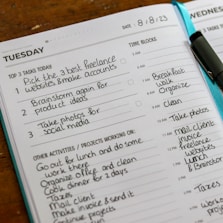 DATE: 8/8/23
TUESDAY
WEDNES
TOP 3 TASKS TODAY
TIME BLOCKS
1 Pick the 3 best freelance
websites & make accounts
2 Brainstorm again for
product ideas
3 Take photos for
social media
Breakfast
walk
Organize
clean
Take photos
mail client
invoice
Freelance
websites
lunch
& Brainstorm
OTHER ACTIVITIES / PROJECTS WORKING ON:
Go out for lunch and do some
work there
Organize office and clean
Cook dinner for 2 days
Taxes
Mail client
Make invoice & send it
Continue projects